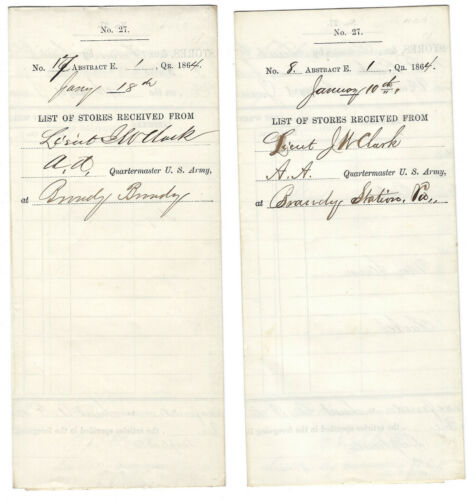 No. 27.
No. 17 Abstract E. 1, Qr. 1864.
Jany 18th
LIST OF STORES RECEIVED FROM
Lieut J W Clark
A. A. Quartermaster U. S. Army,
at Brandy
No. 27.
No. 8. Abstract E. 1, Qr. 1864.
January 10th
LIST OF STORES RECEIVED FROM
Lieut J W Clark
A. A. Quartermaster U. S. Army,
at Brandy Station, Va.